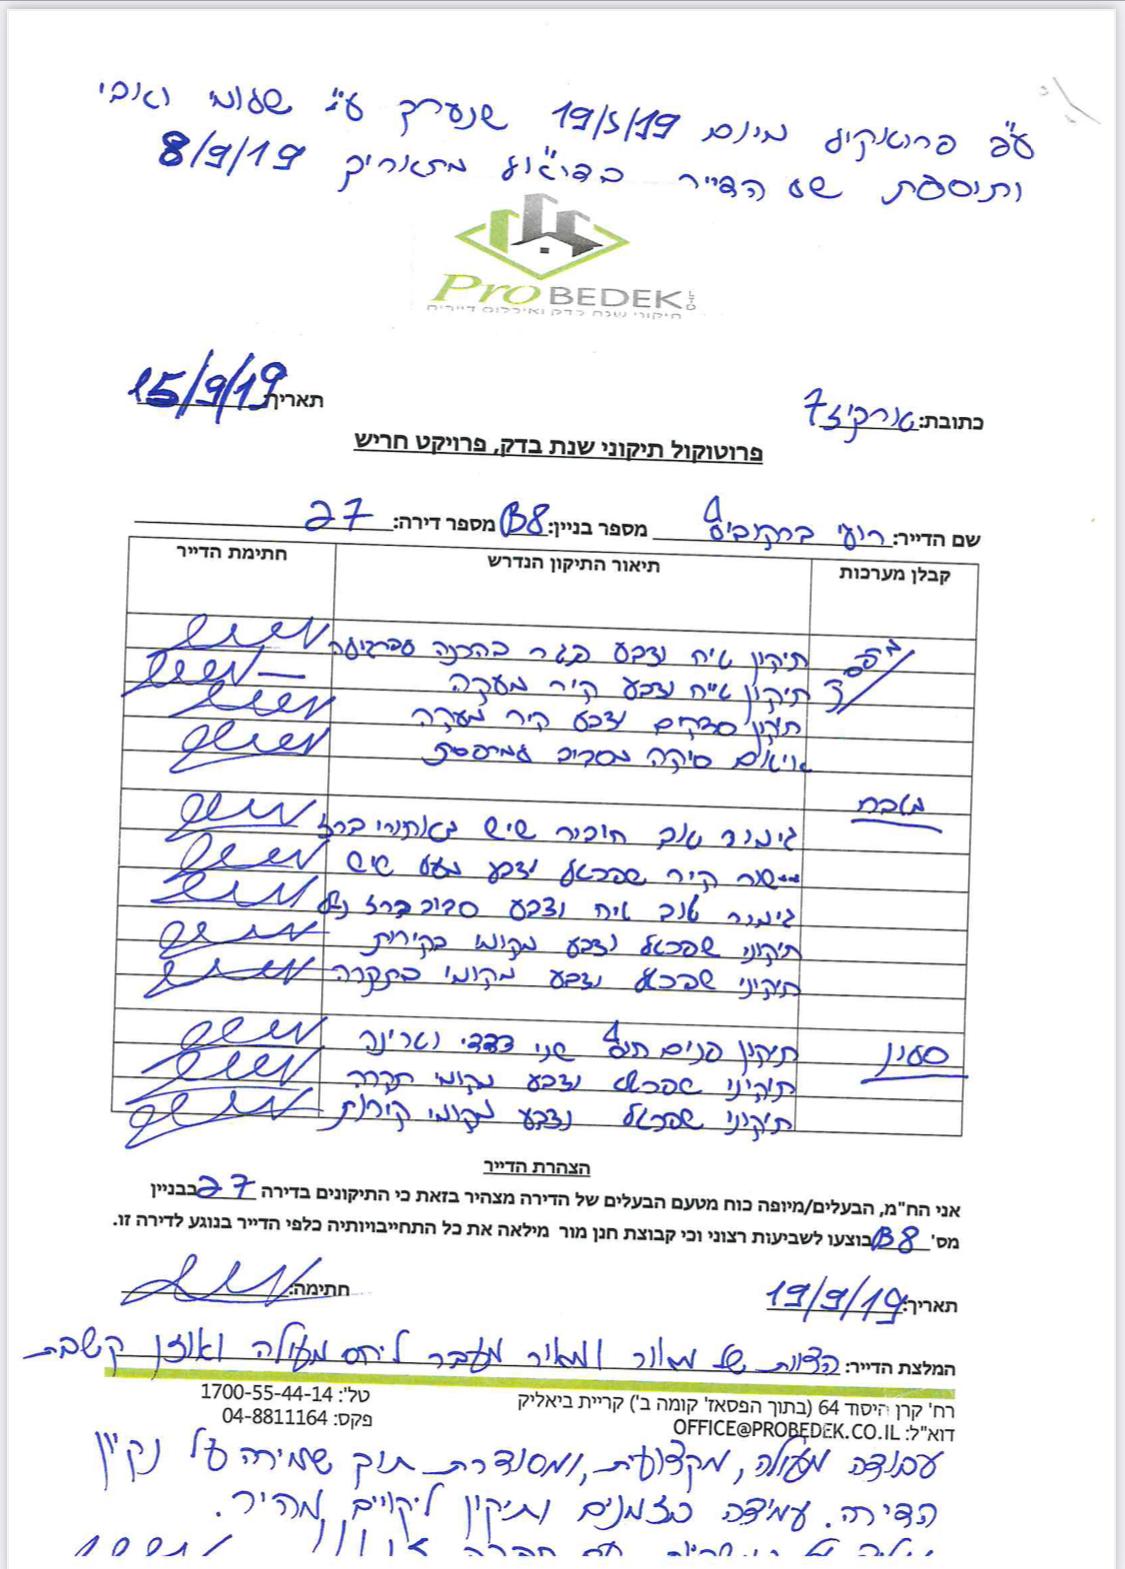 ע"פ פרוטוקול מיום 19/5/19 שנערך ע"י שלומי ואבי
ותוספת של הדייר בדוא"ל מתאריך 8/9/19
Pro BEDEK LTD
תיקוני שנת בדק ואיכלוס דיירים
כתובת: טורקיז 7
תאריך: 15/9/19
פרוטוקול תיקוני שנת בדק, פרויקט חריש
שם הדייר: רועי ברקוביץ מספר בניין: B8 מספר דירה: 27
קבלן מערכות תיאור התיקון הנדרש חתימת הדייר
תיקון טיח וצבע בגג
תיקון טייח וצבע קיר מעקה
תיקון סדקים וצבע קיר מעקה
סיקה מסביב
מטבח
גימור טוב חיבור שיש מאחורי ברז
יישור קיר שפכטל וצבע מעל שיש
גימור טוב טיח וצבע סביב ברז ניל
תיקוני שפכטל וצבע מקומי בקירות
תיקוני שפכטל וצבע מקומי בתקרה
סלון
תיקון פנים חוץ שני צדדי ויטרינה
תיקוני שפכטל וצבע מקומי תקרה
תיקוני שפכטל וצבע מקומי קירות
הצהרת הדייר
אני הח"מ, הבעלים/מיופה כוח מטעם הבעלים של הדירה מצהיר בזאת כי התיקונים בדירה 27 בבניין
מס' B8 בוצעו לשביעות רצוני וכי קבוצת חנן מור מילאה את כל התחייבויותיה כלפי הדייר בנוגע לדירה זו.
תאריך: 19/9/19 חתימה:
המלצת הדייר: הצוות של מאור ומאור מעבר ליחס מעולה ואוזן קשבת
רח' קרן היסוד 64 (בתוך הפסאז' קומה ב') קריית ביאליק
טל': 1700-55-44-14
דוא"ל: OFFICE@PROBEDEK.CO.IL
פקס: 04-8811164
עבודה מעולה, מקצועית, ומסודרת תוך שמירה על נקיון
הדירה. עמידה בזמנים ותיקון ליקויים מהיר.